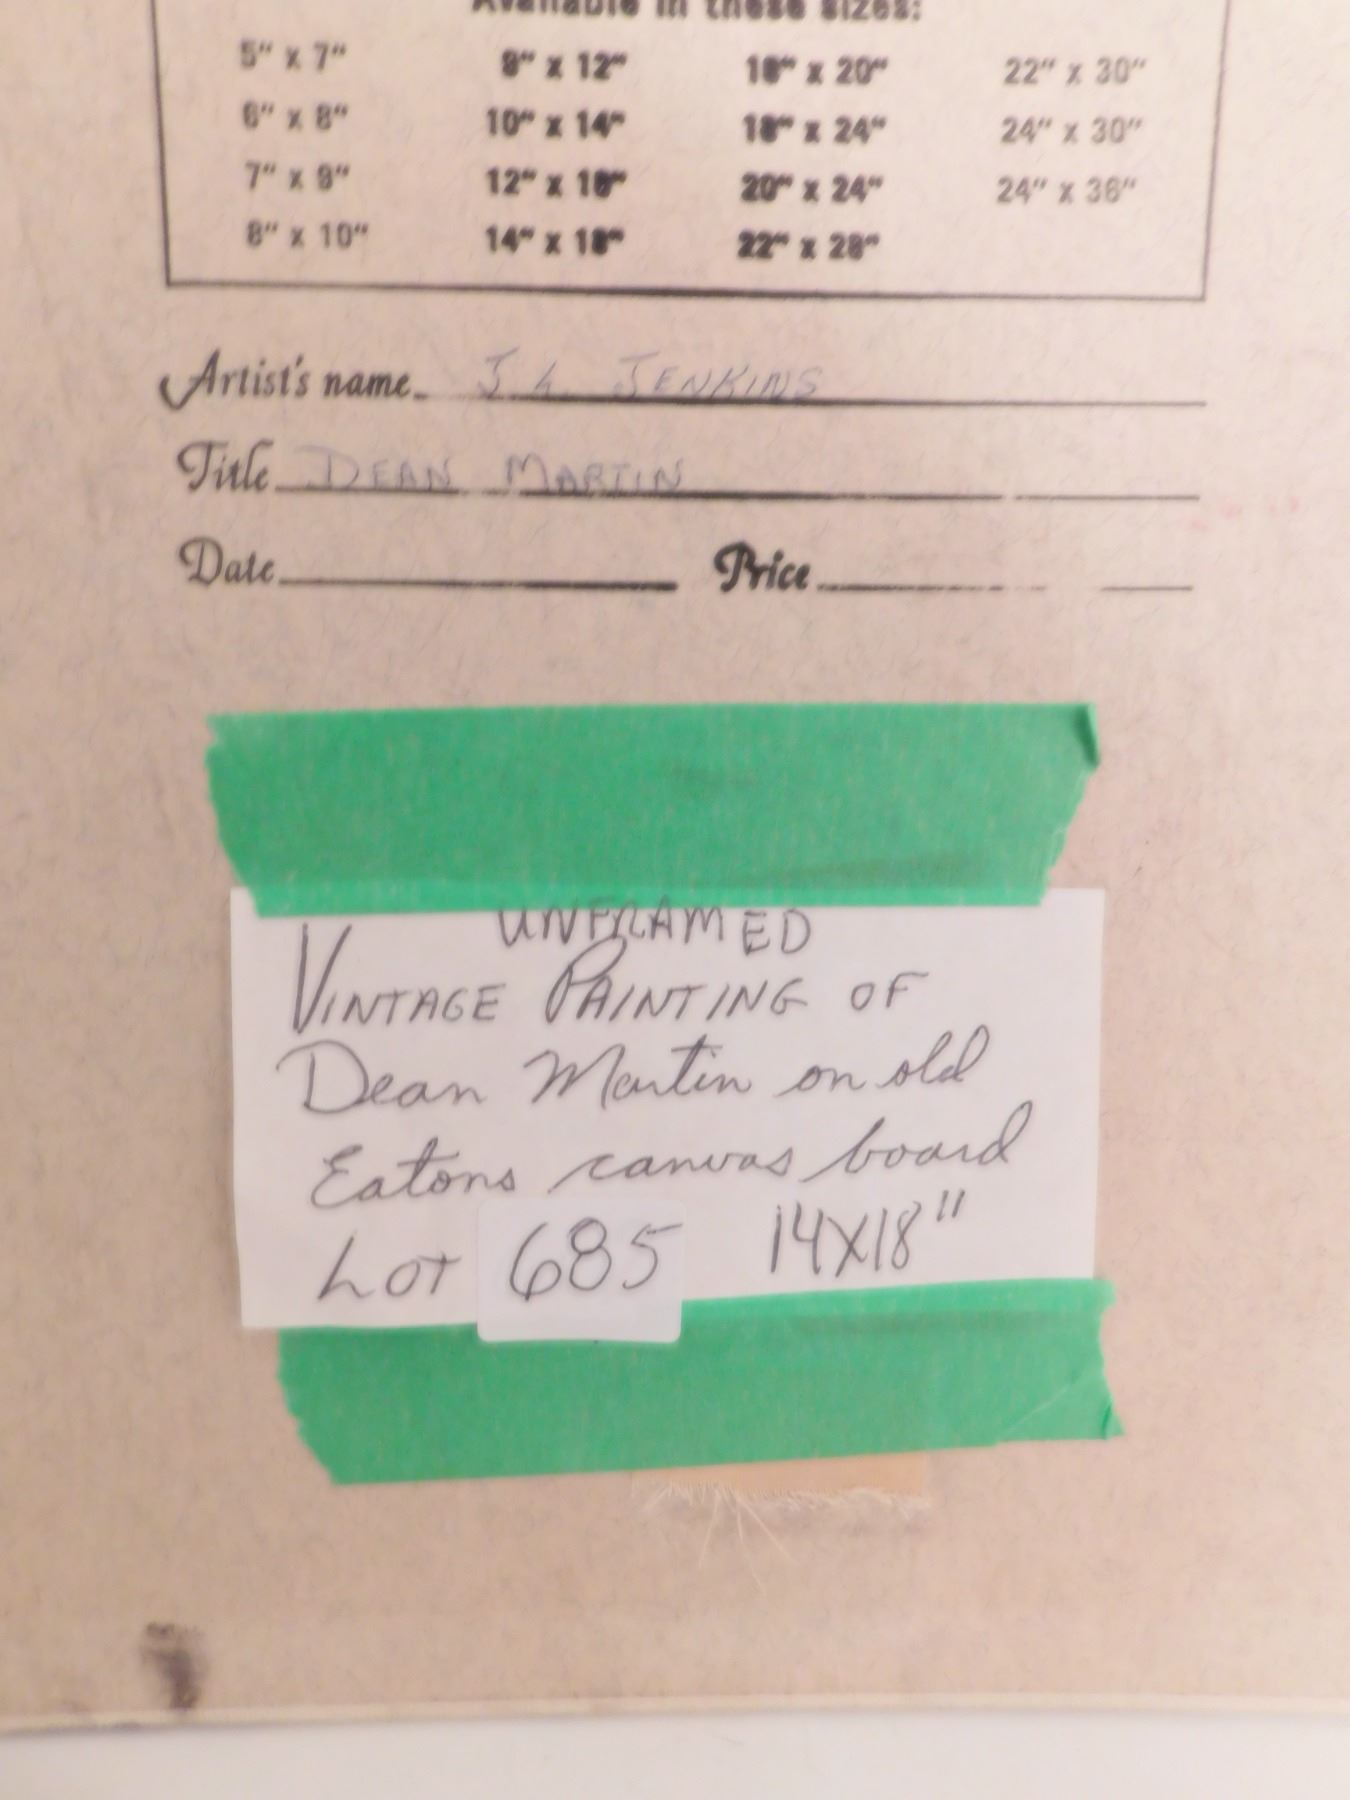 Available in these sizes:
5" x 7" 9" x 12" 16" x 20" 22" x 30"
6" x 8" 10" x 14" 18" x 24" 24" x 30"
7" x 9" 12" x 16" 20" x 24" 24" x 36"
8" x 10" 14" x 18" 22" x 28"
Artist's name J L JENKINS
Title DEAN MARTIN
Date Price
UNFRAMED
VINTAGE PAINTING OF
Dean Martin on old
Eatons canvas board
LOT 685 14X18"